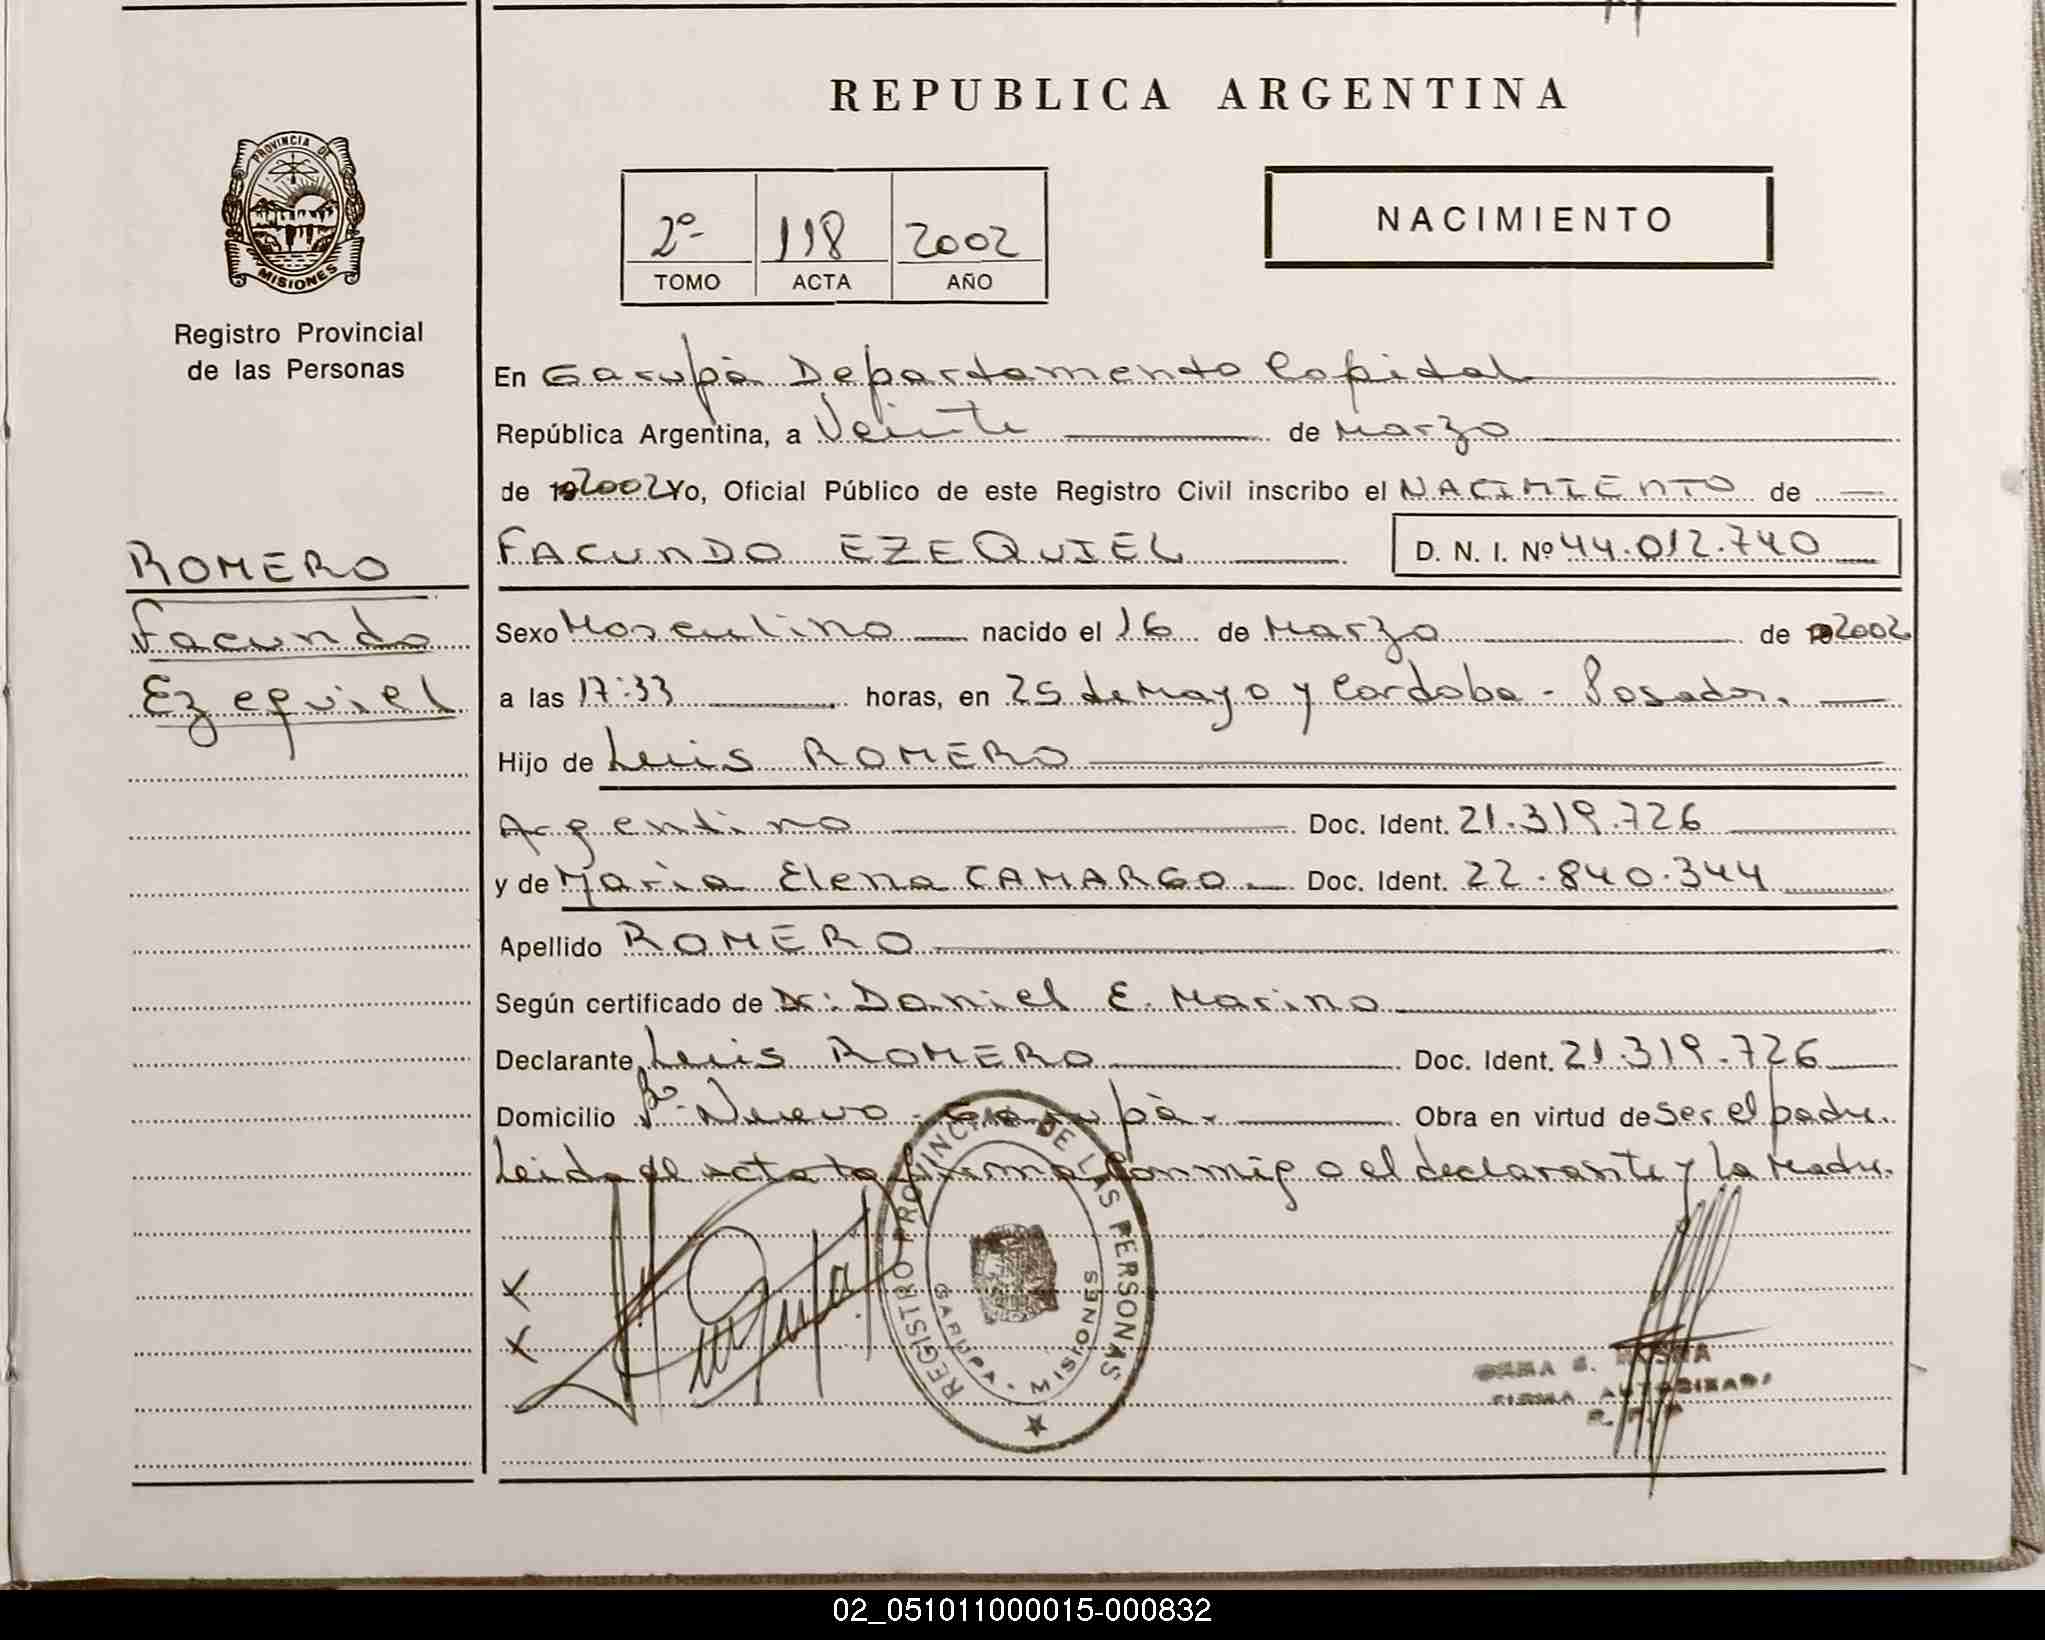 REPUBLICA ARGENTINA
PROVINCIA DE
MISIONES
Registro Provincial
de las Personas
2º-
TOMO
118
ACTA
2002
AÑO
NACIMIENTO
En Garupà Departamento Capital
República Argentina, a Veinte de Marzo
de 192002 Yo, Oficial Público de este Registro Civil inscribo el NACIMIENTO de
FACUNDO EZEQUIEL D. N. I. Nº 44.012.740
ROMERO
Facundo
Ezequiel
Sexo Masculino nacido el 16 de Marzo de 192002
a las 17:33 horas, en 25 de Mayo y Cordoba - Posadas.
Hijo de Luis ROMERO
Argentino Doc. Ident. 21.319.726
y de Maria Elena CAMARGO Doc. Ident. 22.840.344
Apellido ROMERO
Según certificado de Dr: Daniel E. Marino
Declarante Luis ROMERO Doc. Ident. 21.319.726
Domicilio Bº Nuevo - Garupà. Obra en virtud de Ser el padre.
Leida el acta la firma conmigo el declarante y La Madre.
REGISTRO PROVINCIAL DE LAS PERSONAS
GARUPA - MISIONES
FIRMA AUTORIZADA
R. P. P
02_051011000015-000832